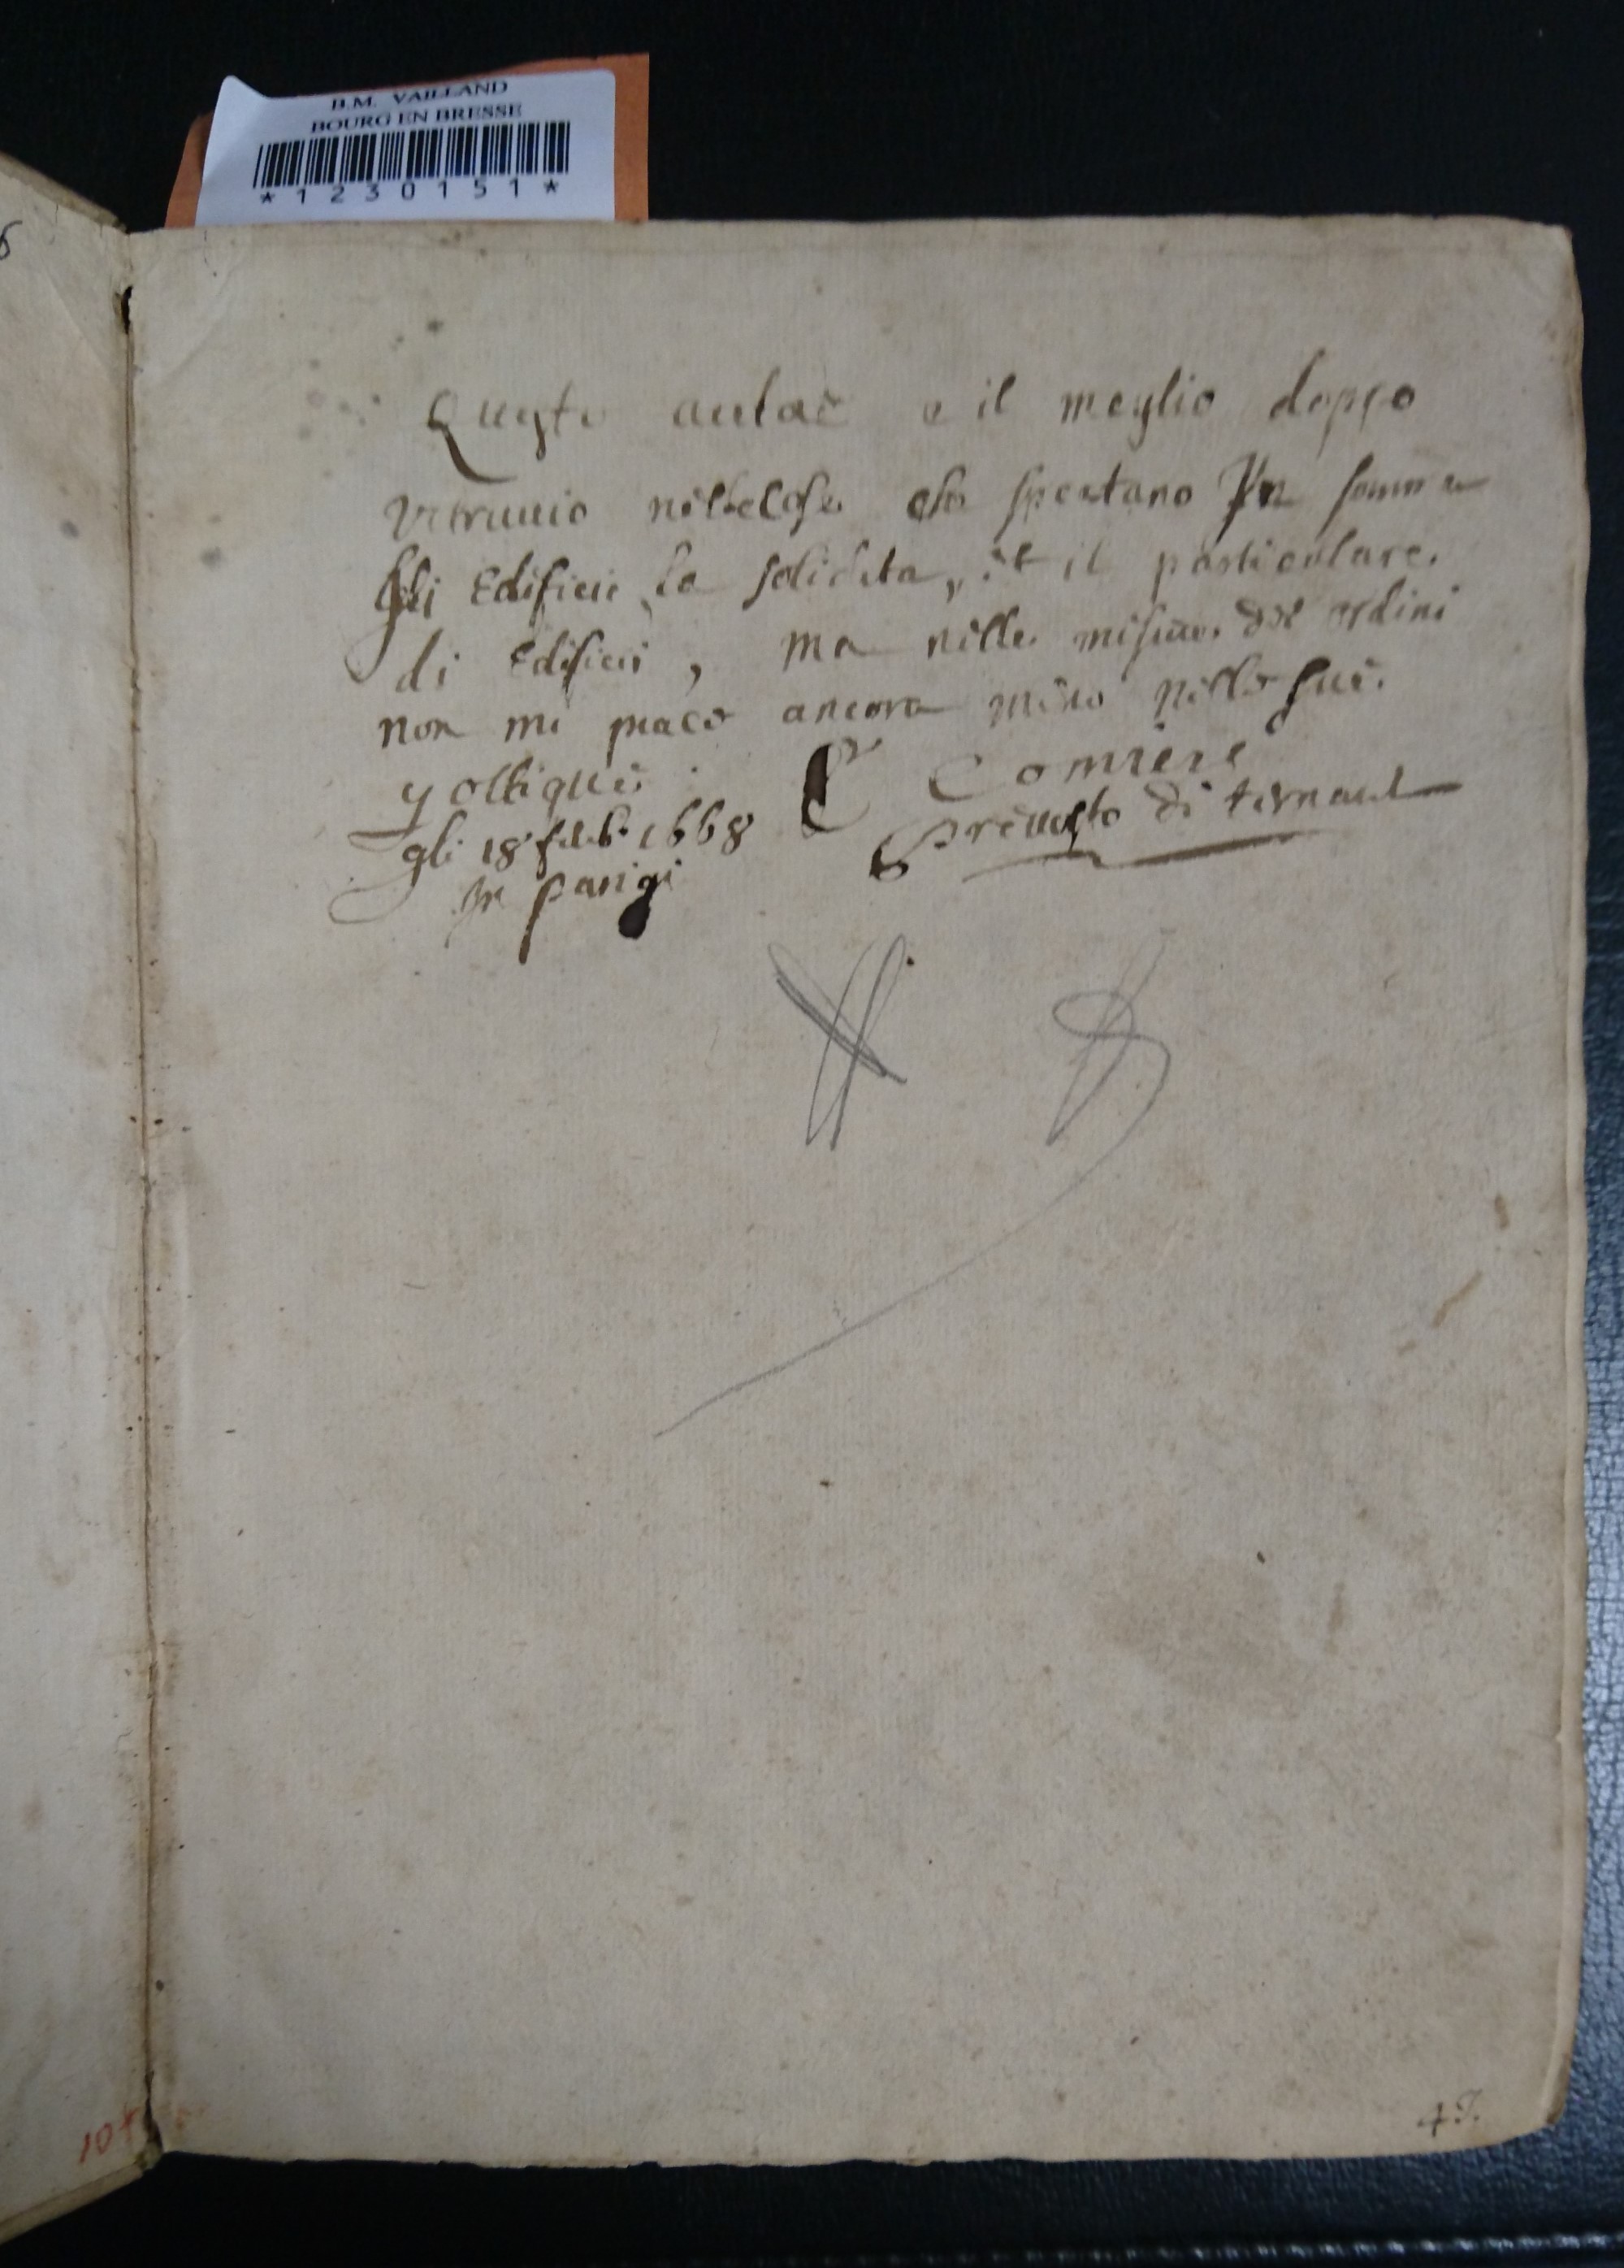 B.M. VAILLAND
BOURG EN BRESSE
*1230151*
Questo autore e il meglio doppo
Vitruuio nelle cose che spectano In somma
gli Edificii la solidita, et il particulare
di Edificii, ma nelle misure del ordini
non mi piace ancora meno nelle sue
gli 18 feb. 1668
In parigi
C Comiers
preuosto di ternant